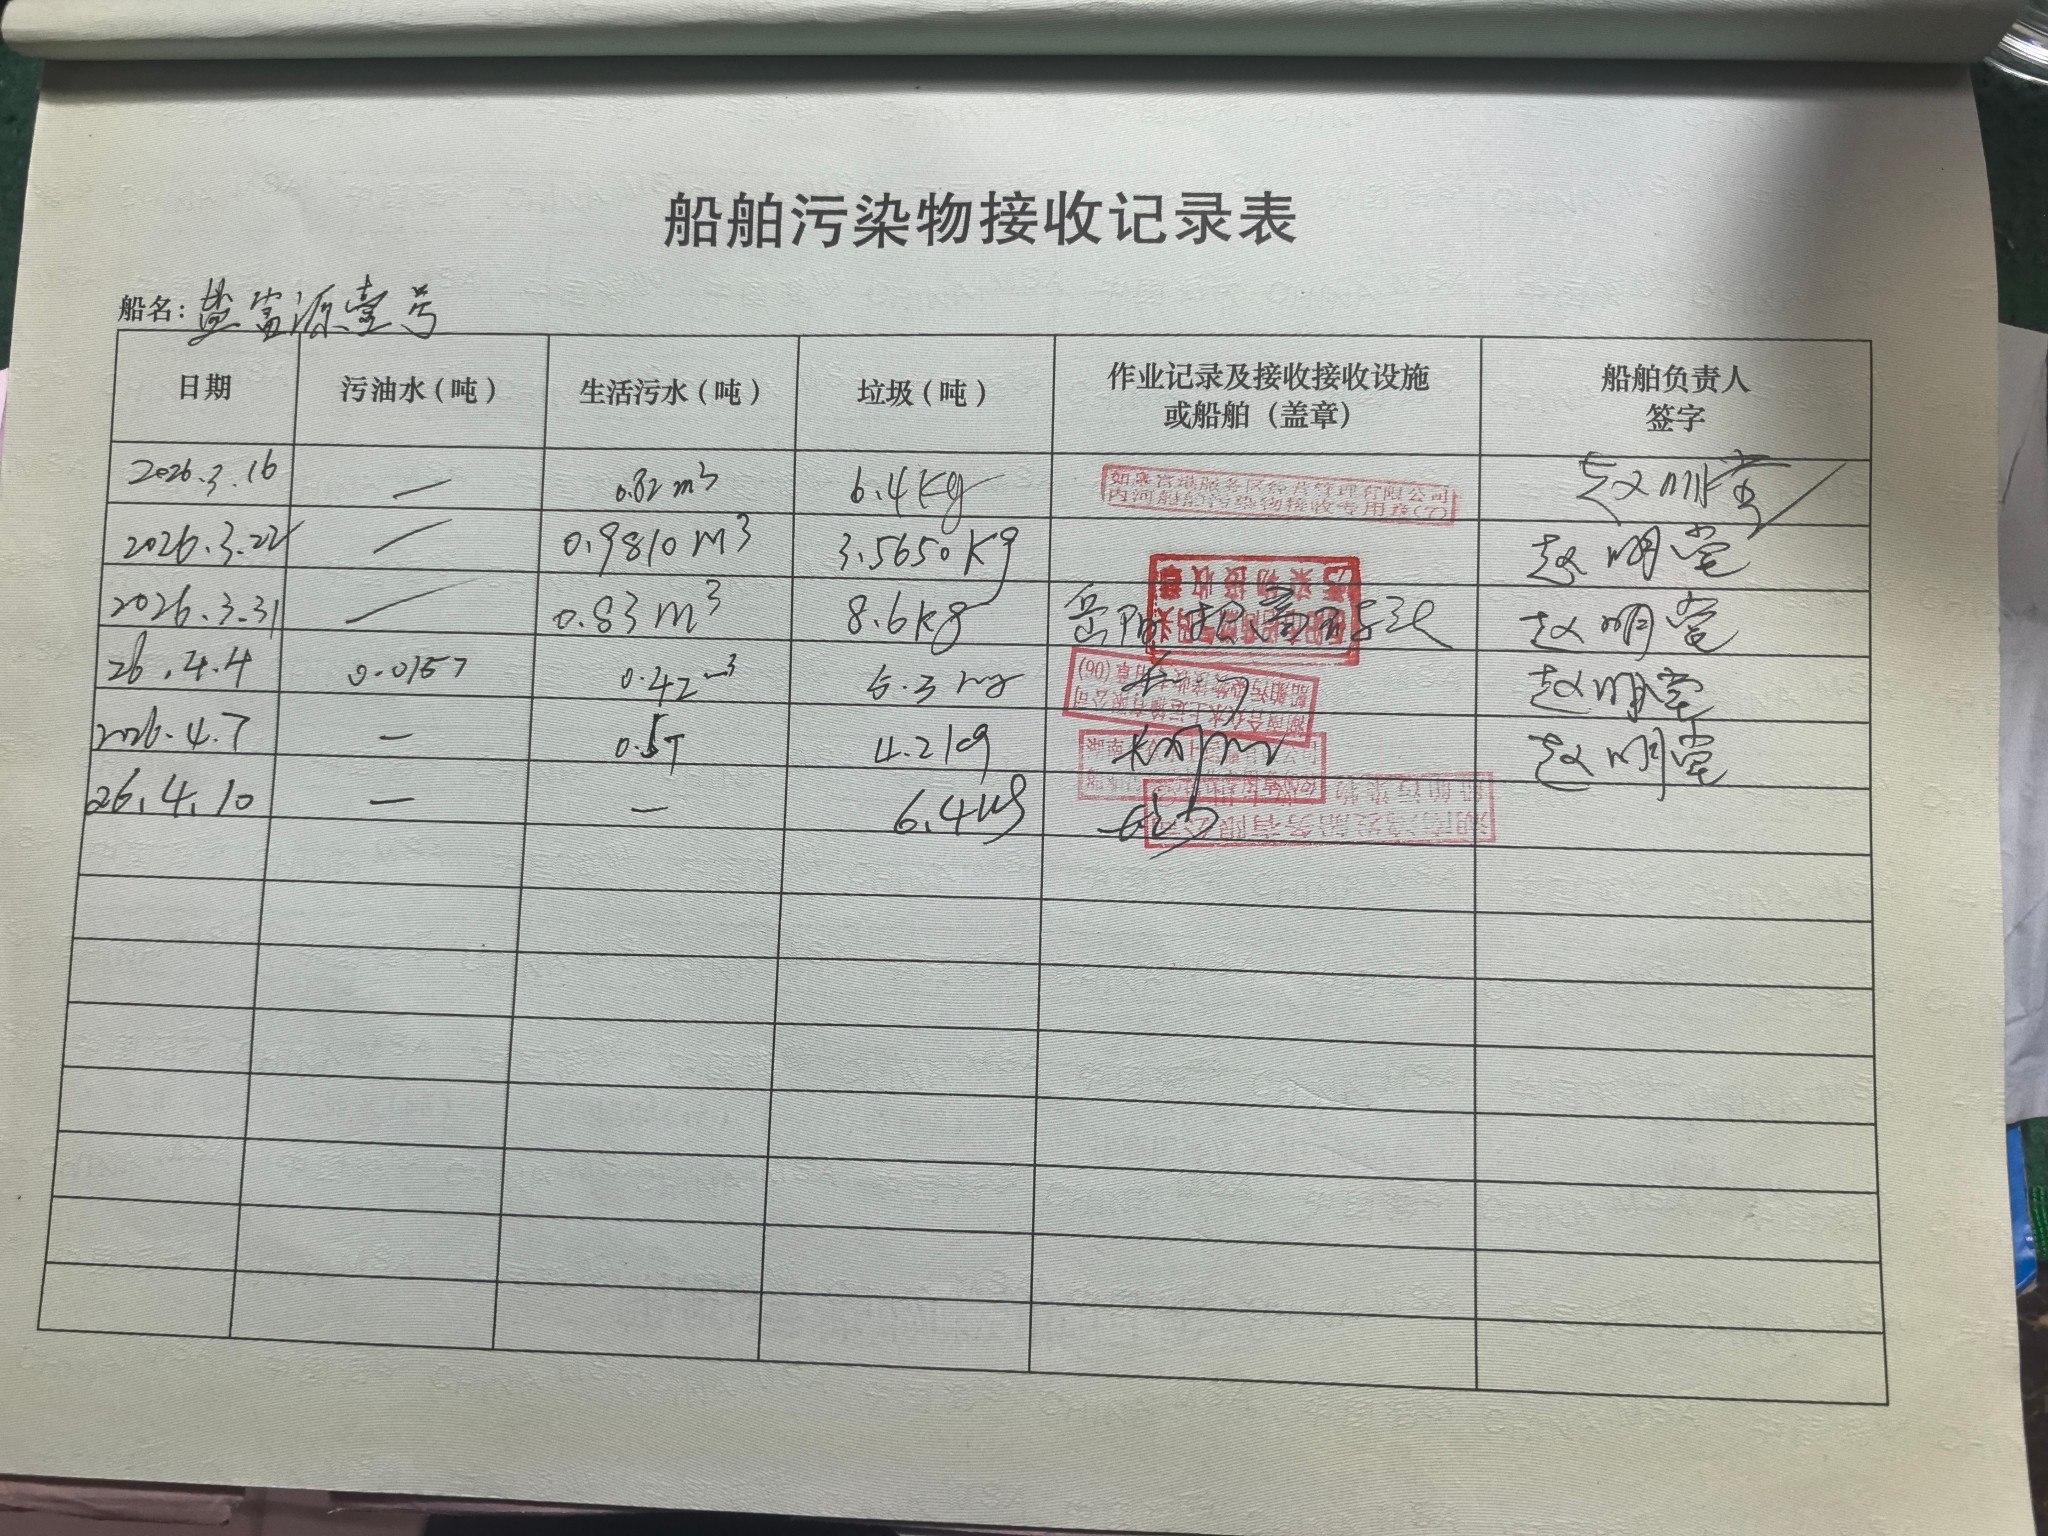 船舶污染物接收记录表
船名：盐富源壹号
日期 污油水（吨） 生活污水（吨） 垃圾（吨） 作业记录及接收接收设施或船舶（盖章） 船舶负责人签字
2026.3.16 — 0.82 m³ 6.4Kg 内河船舶污染物接收专用章(7) 赵明堂
2026.3.22 / 0.9810 m³ 3.5650Kg 赵明堂
2026.3.31 / 0.83 m³ 8.6kg 岳阳 赵明堂
26.4.4 0.015T 0.42 m³ 6.3 kg 船舶污染物接收专用章(06) 赵明堂
2026.4.7 — 0.5T 4.2kg 赵明堂
26.4.10 — — 6.4kg 船舶污染物